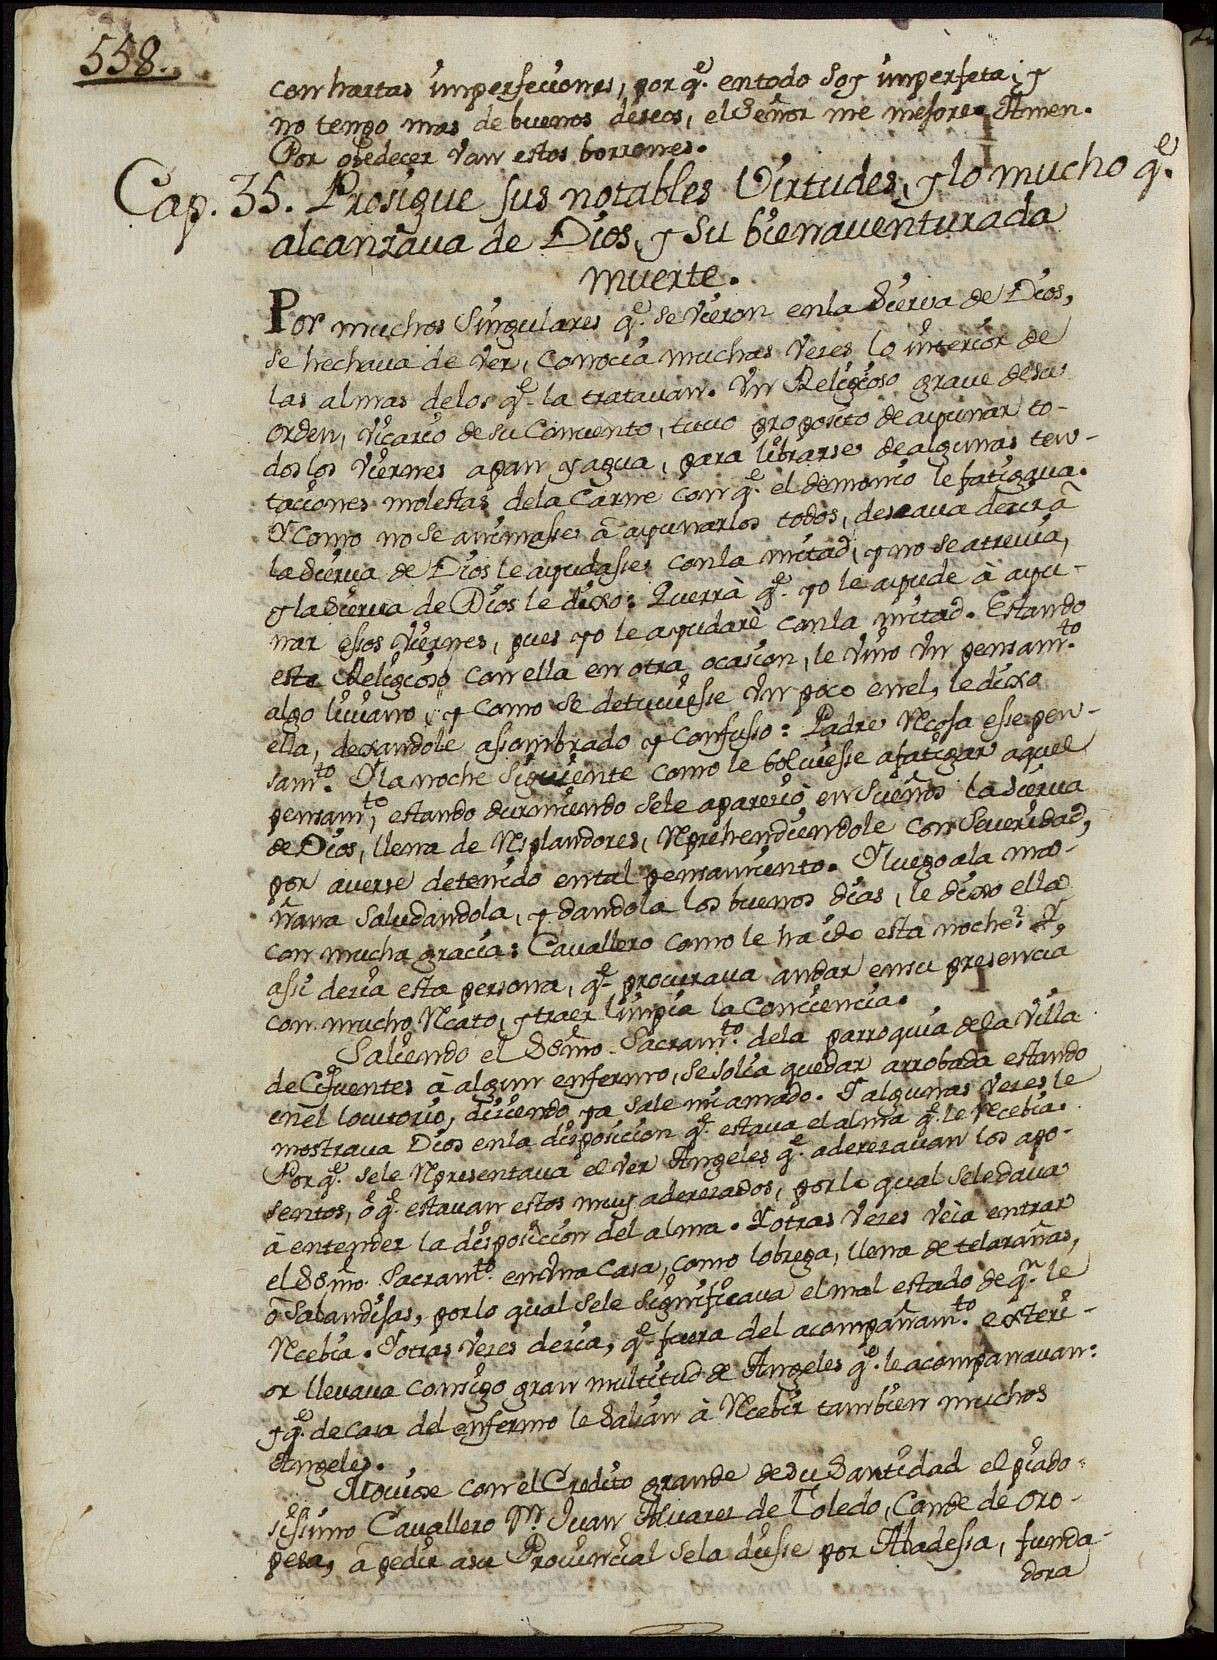 558.
con hartas imperfeciones, por q^e. en todo soy imperfeta, y
no tengo mas de buenos deseos, el Señor me mejore. Amen.
Por obedecer van estos borrones.
Cap. 35. Prosigue sus notables Virtudes, y lo mucho q^e.
alcanzava de Dios, y su bienaventurada
muerte.
Por muchos singulares q^e. se vieron en la Sierva de Dios,
se hechava de ver, conocia muchas vezes lo interior de
las almas de los q^e. la tratavan. Un Religioso grave de su
orden, vicario de su Convento, tuvo proposito de ayunar to-
dos los viernes a pan y agua, para librarse de algunas ten-
taciones molestas de la Carne con q^e. el demonio le fatigava.
Y como no se animasse à ayunarlos todos, deseava decir à
la Sierva de Dios le ayudasse con la mitad, y no se atrevia,
y la Sierva de Dios le dixo: Querrà q^e. yo le ayude à ayu-
nar essos viernes, pues yo le ayudarè con la mitad. Estando
este Religioso con ella en otra ocasion, le vino un pensam^to.
algo liviano, y como se detuviesse un poco en el, le dixo
ella, dexandole assombrado y confusso: Padre Rcosa esse pen-
sam^to. Y la noche siguiente como le bolviesse a fatigar aquel
pensam^to, estando durmiendo se le aparecio en sueños la Sierva
de Dios, llena de Rsplandores, Rprehendiendole con severidad,
por averse detenido en tal pensamiento. Y luego a la ma-
ñana saludandola, y dandola los buenos dias, le dixo ella
con mucha gracia: Cavallero como le ha ido esta noche? Y
assi decia esta persona, q^e. procurava andar en su presencia
con mucho Rcato, y traer limpia la Conciencia.
Saliendo el SSmo. Sacram^to. de la parroquia de la Villa
de Cifuentes à algun enfermo, se solia quedar arrobada estando
en el locutorio, diciendo, ya sale mi amado. Y algunas vezes le
mostrava Dios en la disposicion q^e. estava el alma q^e. le Rcebia.
Por q^e. se le Rpresentava el ver Angeles q^e. aderezavan los apo-
sentos, ò q^e. estavan estos muy aderezados, por lo qual se le dava
à entender la disposicion del alma. Y otras vezes veìa entrar
el SSmo. Sacram^to. en una casa, como lobrega, llena de telarañas,
ò sabandijas, por lo qual se le significava el mal estado de q^n. le
Rcebia. Y otras vezes decia, q^e. fuera del acompañam^to. exteri-
or llevava consigo gran multitud de Angeles q^e. le acompanavan:
y q^e. de casa del enfermo le salian à Rcebir tambien muchos
Angeles.
Moviose con el Credito grande de su Santidad el piado-
sissimo Cavallero Dn. Juan Alvarez de Toledo, Conde de Oro-
pesa, à pedir a su Provincial se la diesse por Abadessa, funda-
dora